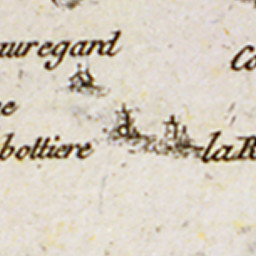 auregard
Co
e
bottiere
la R